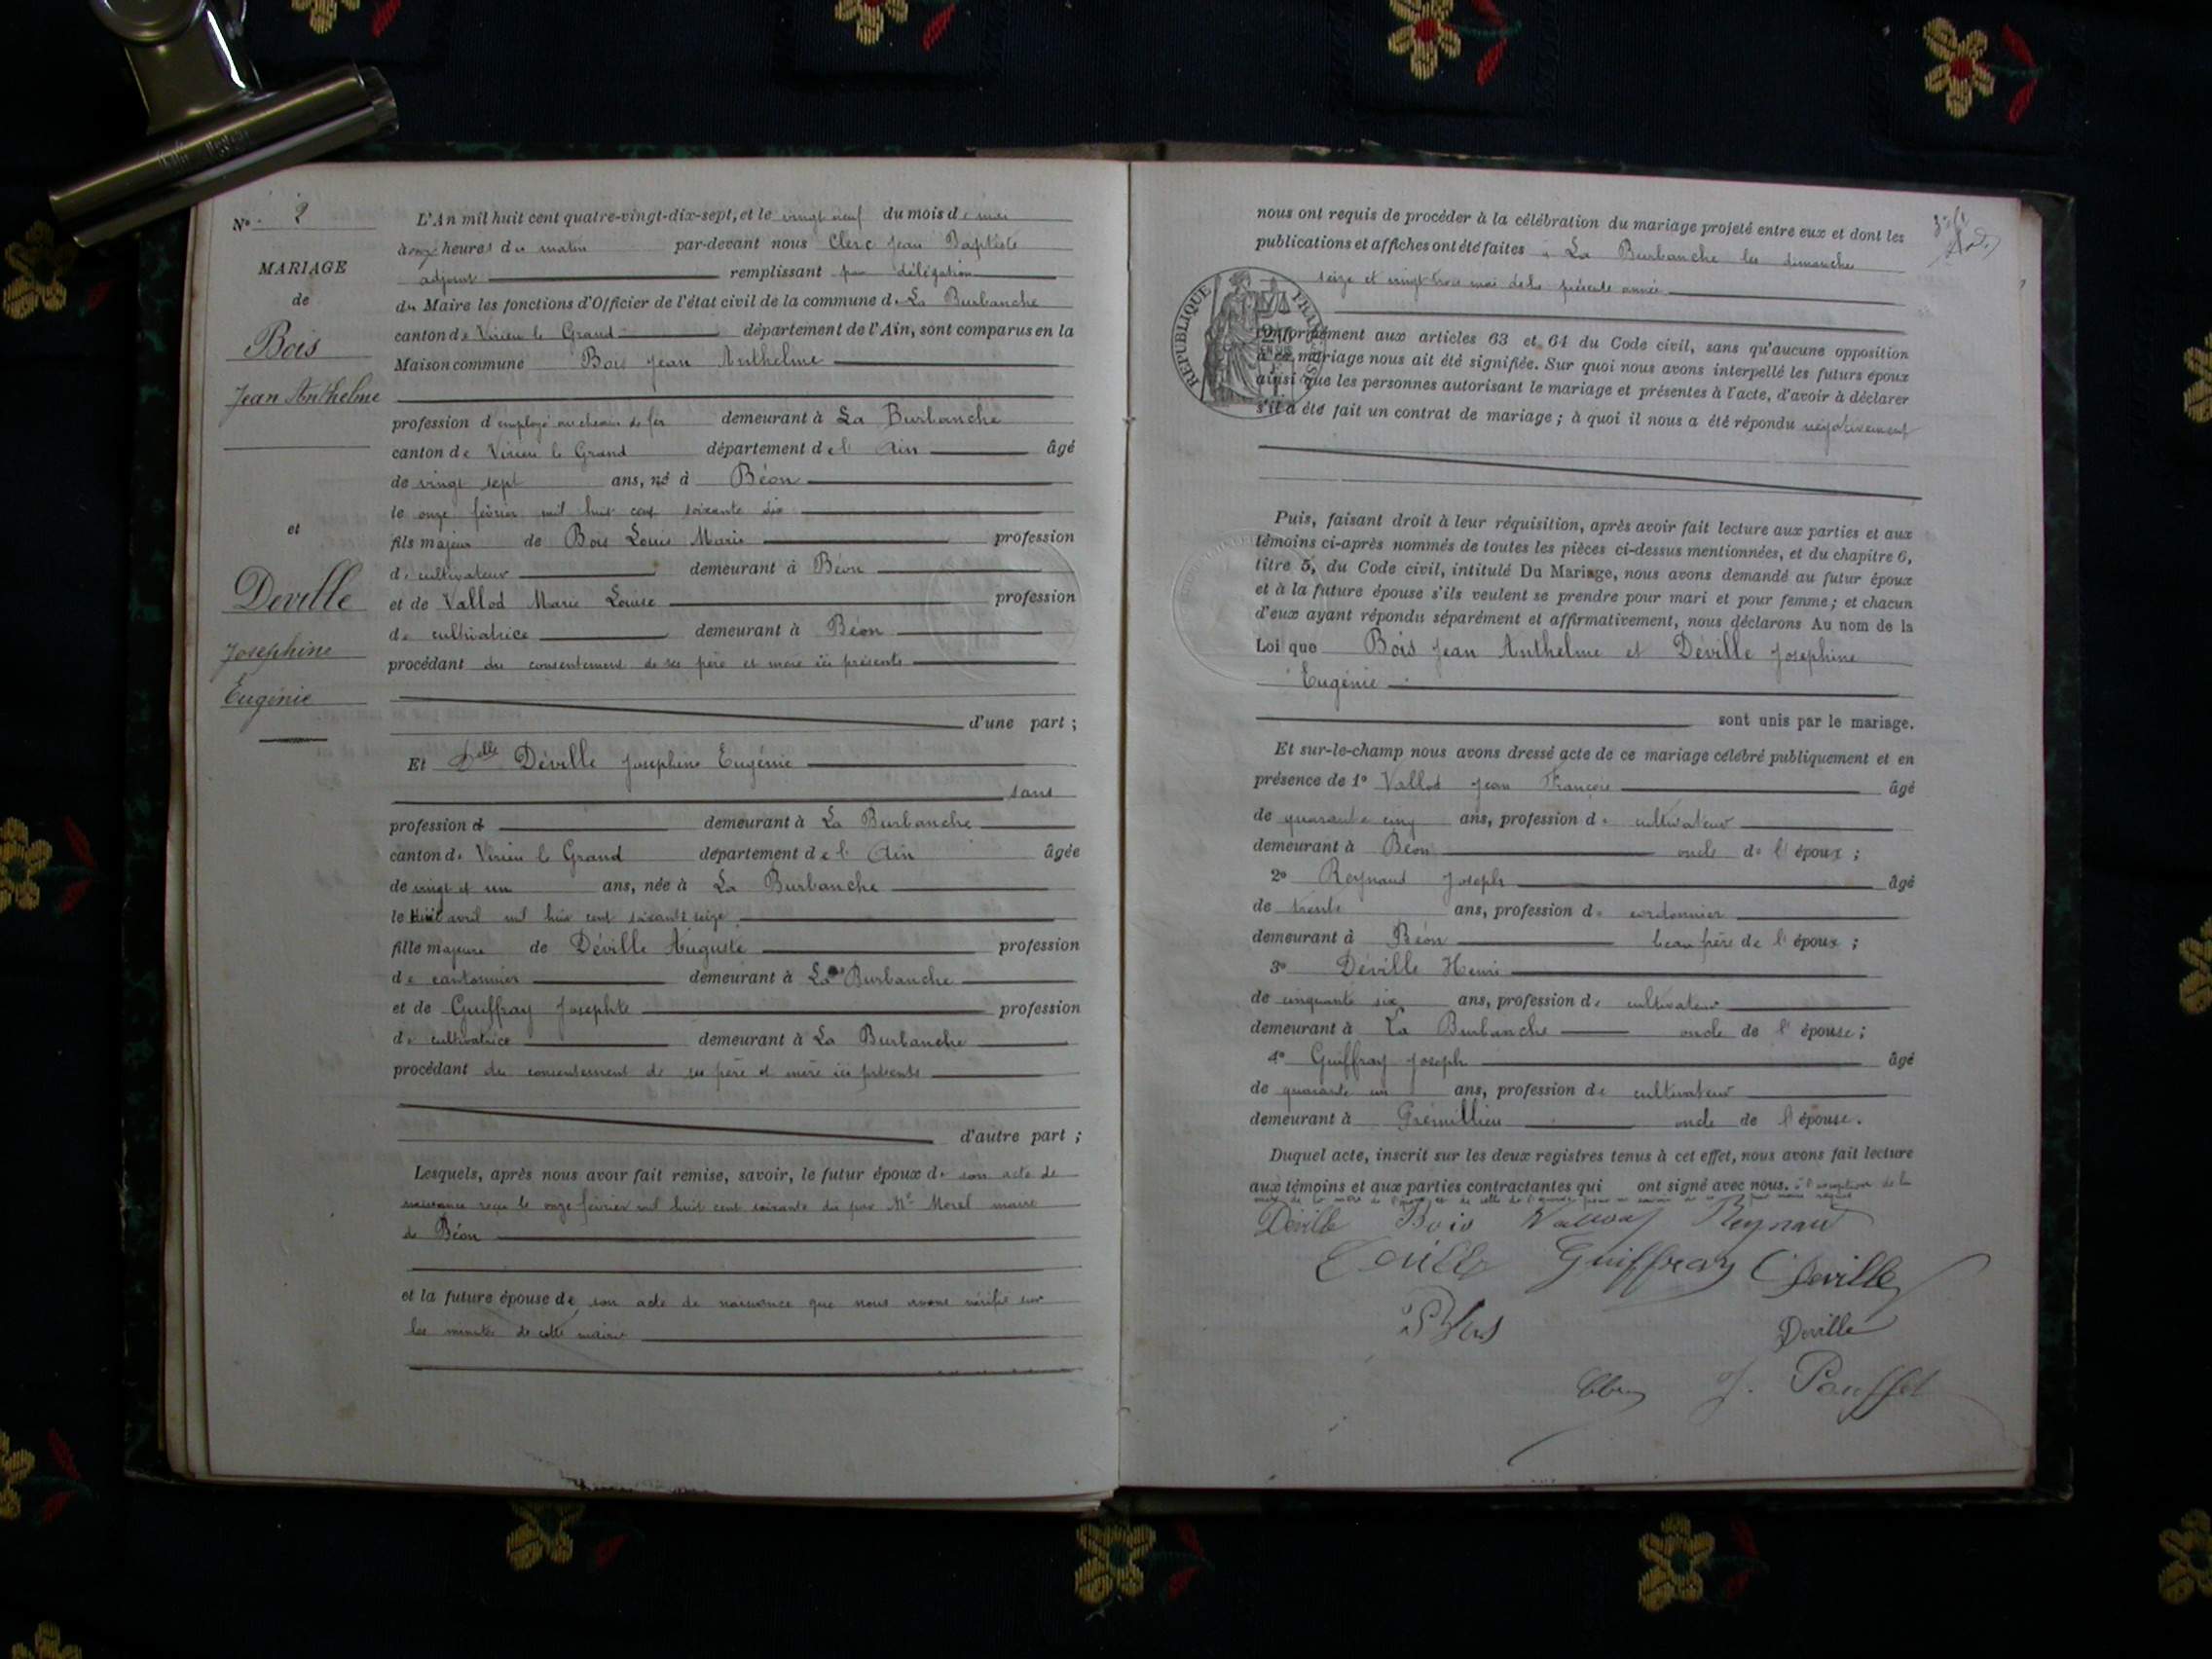 N° 2
MARIAGE
de
Bois
Jean Anthelme
et
Déville
Joséphine
Eugénie
L'An mil huit cent quatre-vingt-dix-sept, et le vingt neuf du mois de mai
à onze heures du matin par-devant nous Clerc Jean Baptiste
adjoint remplissant par délégation
du Maire les fonctions d'Officier de l'état civil de la commune de La Burbanche
canton de Virieu le Grand département de l'Ain, sont comparus en la
Maison commune Bois Jean Anthelme
profession d'employé au chemin de fer demeurant à La Burbanche
canton de Virieu le Grand département de l'Ain âgé
de vingt sept ans, né à Béon
le onze février mil huit cent soixante dix
fils majeur de Bois Louis Marie profession
de cultivateur demeurant à Béon
et de Vallod Marie Louise profession
de cultivatrice demeurant à Béon
procédant du consentement de ses père et mère ici présents
d'une part ;
Et Delle Déville Joséphine Eugénie
sans
profession d demeurant à La Burbanche
canton de Virieu le Grand département de l'Ain âgée
de vingt et un ans, née à La Burbanche
le huit avril mil huit cent soixante seize
fille majeure de Déville Auguste profession
de cantonnier demeurant à La Burbanche
et de Guiffray Josephte profession
de cultivatrice demeurant à La Burbanche
procédant du consentement de ses père et mère ici présents
d'autre part ;
Lesquels, après nous avoir fait remise, savoir, le futur époux de son acte de
naissance reçu le onze février mil huit cent soixante dix par Mr Morel maire
de Béon
et la future épouse de son acte de naissance que nous avons vérifié sur
les minutes de cette mairie
nous ont requis de procéder à la célébration du mariage projeté entre eux et dont les
publications et affiches ont été faites à La Burbanche les dimanches
seize et vingt trois mai de la présente année
RÉPUBLIQUE FRANÇAISE
conformément aux articles 63 et 64 du Code civil, sans qu'aucune opposition
à ce mariage nous ait été signifiée. Sur quoi nous avons interpellé les futurs époux
ainsi que les personnes autorisant le mariage et présentes à l'acte, d'avoir à déclarer
s'il a été fait un contrat de mariage ; à quoi il nous a été répondu négativement
Puis, faisant droit à leur réquisition, après avoir fait lecture aux parties et aux
témoins ci-après nommés de toutes les pièces ci-dessus mentionnées, et du chapitre 6,
titre 5, du Code civil, intitulé Du Mariage, nous avons demandé au futur époux
et à la future épouse s'ils veulent se prendre pour mari et pour femme ; et chacun
d'eux ayant répondu séparément et affirmativement, nous déclarons Au nom de la
Loi que Bois Jean Anthelme et Déville Joséphine
Eugénie
sont unis par le mariage.
Et sur-le-champ nous avons dressé acte de ce mariage célébré publiquement et en
présence de 1° Vallod Jean François âgé
de quarante cinq ans, profession de cultivateur
demeurant à Béon oncle de l'époux ;
2° Reynaud Joseph âgé
de trente ans, profession de cordonnier
demeurant à Béon beau frère de l'époux ;
3° Déville Henri
de cinquante six ans, profession de cultivateur
demeurant à La Burbanche oncle de l'épouse ;
4° Guiffray Joseph âgé
de quarante un ans, profession de cultivateur
demeurant à Prémillieu oncle de l'épouse.
Duquel acte, inscrit sur les deux registres tenus à cet effet, nous avons fait lecture
aux témoins et aux parties contractantes qui ont signé avec nous. à l'exception de la
Déville Bois Vallod Reynaud
Guiffray Deville
Deville
J. Pouffet